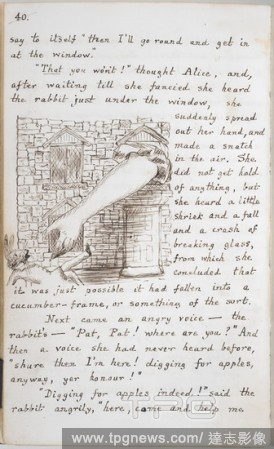 40.
say to itself "then I'll go round and get in
at the window."
"That you won't!" thought Alice, and,
after waiting till she fancied she heard
the rabbit just under the window, she
suddenly spread
out her hand, and
made a snatch
in the air. She
did not get hold
of anything, but
she heard a little
shriek and a fall
and a crash of
breaking glass,
from which she
concluded that
it was just possible it had fallen into a
cucumber-frame, or something of the sort.
Next came an angry voice — the
rabbit's — "Pat, Pat! where are you?" And
then a voice she had never heard before,
"shure then I'm here! digging for apples,
anyway, yer honour!"
"Digging for apples indeed!" said the
rabbit angrily, "here, come and help me
www.tpgnews.com/達志影像